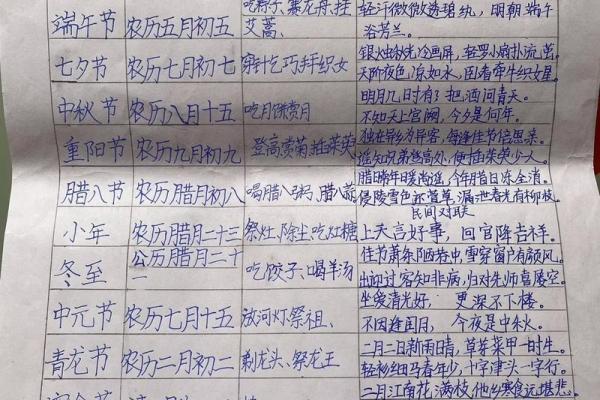 吃粽子、赛龙舟、挂
端午节 农历五月初五 艾蒿、
轻汗微微透碧纨，明朝端午
浴芳兰。
七夕节 农历七月初七 穿针乞巧拜织女
银烛秋光冷画屏，轻罗小扇扑流萤。
天阶夜色凉如水，卧看牵牛织女星。
中秋节 农历八月十五 吃月饼赏月
明月几时有？把酒问青天。
不知天上宫阙，今夕是何年。
重阳节 农历九月初九 登高赏菊、插茱萸
独在异乡为异客，每逢佳节倍思亲。
遥知兄弟登高处，便插茱萸少一人。
腊八节 农历腊月初八 喝腊八粥、腊八蒜
腊日常年暖尚遥，今年腊日冻全消。
侵陵雪色还萱草，漏泄春光有柳枝。
民间对联
小年 农历腊月二十三 祭灶、除尘、吃灶糖
上天言好事，回宫降吉祥。
冬至 公历腊月二十一 吃饺子、喝羊汤
佳节萧条陋巷中，雪穿窗户有颜风。
出迎过客知非病，归对先师喜屡空。
中元节 农历七月十五 放河灯、祭祖、
坐爱清光好，更深不下楼。
不因逢闰月，今夜是中秋。
青龙节 农历二月初二 剃龙头、祭龙王
二月二日新雨晴，草芽菜甲一时生。
轻衫细马春年少，十字津头一字行。
二月江南花满枝，他乡寒食远堪悲。